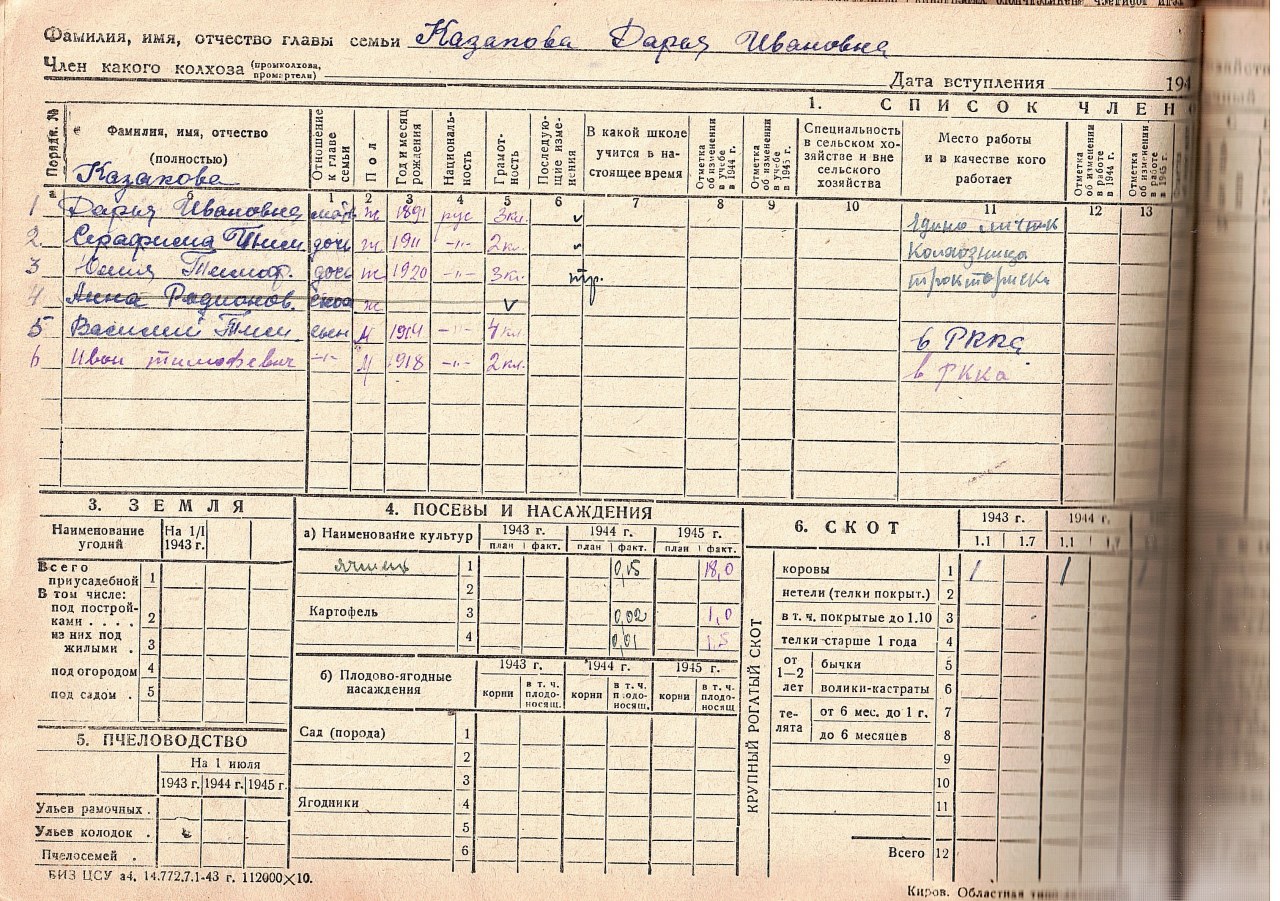 Фамилия, имя, отчество главы семьи Казакова Дарья Ивановна
Член какого колхоза (промколхоза, промартели)
Дата вступления 194
1. СПИСОК ЧЛЕНО
Порядк. №
Фамилия, имя, отчество (полностью)
Отношение к главе семьи
Пол
Год и месяц рождения
Националь-ность
Грамот-ность
Последую-щие изме-нения
В какой школе учится в на-стоящее время
Отметка об изменении в учебе в 1944 г.
Отметка об изменении в учебе в 1945 г.
Специальность в сельском хо-зяйстве и вне сельского хозяйства
Место работы и в качестве кого работает
Отметка об изменении в работе в 1944 г.
Отметка об изменении в работе в 1945 г.
Казакова
1 2 3 4 5 6 7 8 9 10 11 12 13
1 Дарья Ивановна ж 1891 рус 3кл. v
2 Серафима Тим дочь ж 1911 -"- 2кл. v Колхозница
3 Тимоф. дочь ж 1920 -"- 3кл. тр. трактористка
4 Анна Родионов. сноха ж v
5 Василий Тим. сын м 1914 -"- 4кл в РККА
6 Иван тимофевич -"- м 1918 -"- 2кл. в РККА
3. ЗЕМЛЯ
Наименование угодий
На 1/I 1943 г.
Всего приусадебной 1
В том числе:
под построй-ками . . . . 2
из них под жилыми . 3
под огородом 4
под садом . 5
5. ПЧЕЛОВОДСТВО
На 1 июля
1943 г. 1944 г. 1945 г.
Ульев рамочных .
Ульев колодок .
Пчелосемей .
БИЗ ЦСУ а4. 14.772.7.1-43 г. 112000×10.
4. ПОСЕВЫ И НАСАЖДЕНИЯ
а) Наименование культур
1943 г. 1944 г. 1945 г.
план факт. план факт. план факт.
ячмень 1 0,15 18,0
2
Картофель 3 0,02 1,0
4 0,01 1,5
б) Плодово-ягодные насаждения
1943 г. 1944 г. 1945 г.
корни в т. ч. плодо-носящ. корни в т. ч. плодо-носящ. корни в т. ч. плодо-носящ
Сад (порода) 1
2
3
Ягодники 4
5
6
6. СКОТ
1943 г. 1944 г.
1.1 1.7 1.1 1.7
КРУПНЫЙ РОГАТЫЙ СКОТ
коровы 1 1 1
нетели (телки покрыт.) 2
в т. ч. покрытые до 1.10 3
телки старше 1 года 4
от 1—2 лет
бычки 5
волики-кастраты 6
те-лята
от 6 мес. до 1 г. 7
до 6 месяцев 8
9
10
11
Всего 12
Киров. Областная